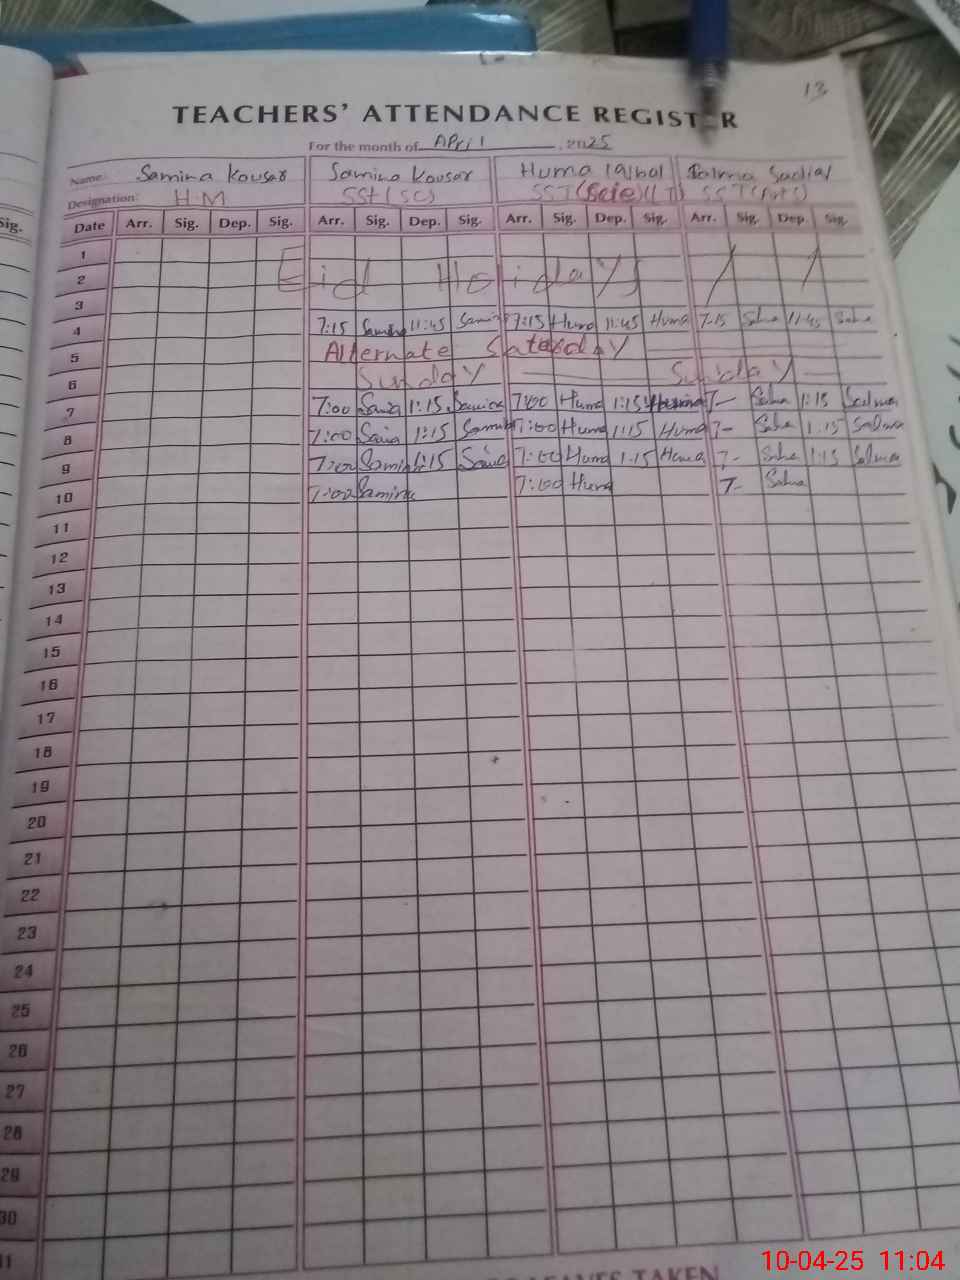 13
TEACHERS' ATTENDANCE REGISTER
For the month of April, 2025
Name: Samina Kousar Samina Kousar Huma Iqbal Salma Sadia
Designation: H.M SST(SC) SST
Sig. Date Arr. Sig. Dep. Sig. Arr. Sig. Dep. Sig. Arr. Sig. Dep. Sig. Arr. Sig. Dep. Sig.
1
2 Eid Holidays
3
4 7:15 Samina 11:45 Samina 7:15 Huma 11:45 Huma 7-15 Salma 11-45 Salma
5 Alternate Saturday
6 Sunday Sunday
7 7:00 Samina 1:15 Samina 7:00 Huma 1:15 Huma 7- Salma 1:15 Salma
8 7:00 Samina 1:15 Samina 7:00 Huma 1:15 Huma 7- Salma 1:15 Salma
9 7:00 Samina 1:15 Samina 7:00 Huma 1:15 Huma 7- Salma 1:15 Salma
10 7:00 Samina 7:00 Huma 7- Salma
11
12
13
14
15
16
17
18
19
20
21
22
23
24
25
26
27
28
29
30
LEAVES TAKEN
10-04-25 11:04